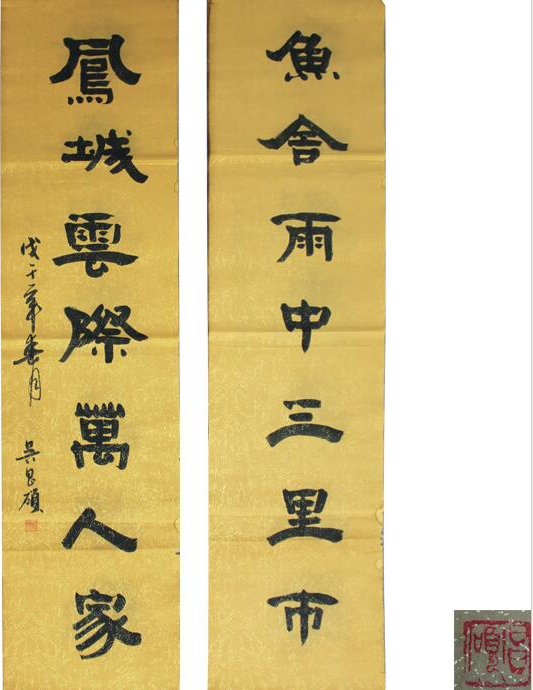 魚舍雨中三里市
鳳城雲際萬人家
戊子年春月 吳昌碩